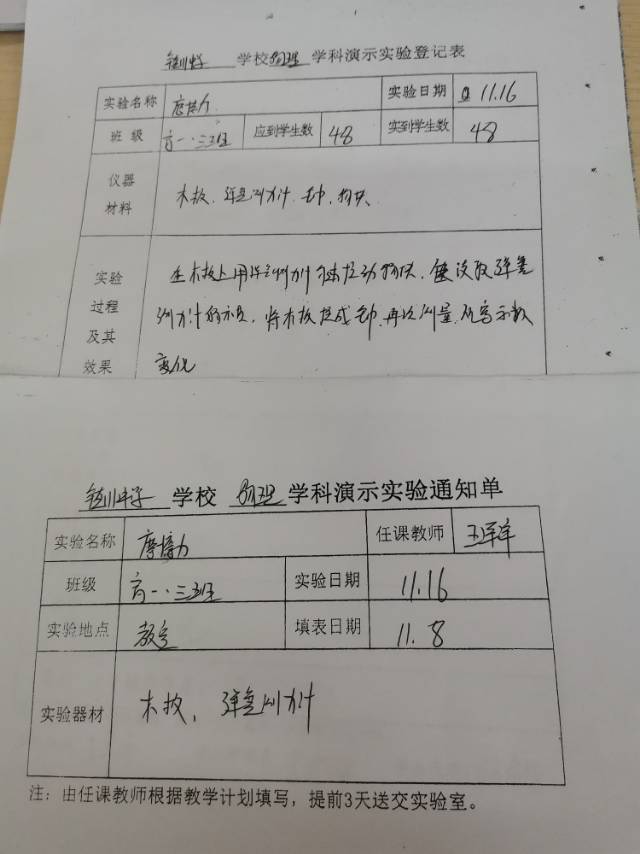 学校物理 学科演示实验登记表
实验名称 摩擦力 实验日期 11.16
班级 高一.三班 应到学生数 48 实到学生数 48
仪器
材料 木板、弹簧测力计、物块
实验
过程
及其
效果
在木板上用弹簧测力计 拉动物块,读取弹簧
测力计的示数,将木板换成 再次测量,观察示数
变化
学校 物理 学科演示实验通知单
实验名称 摩擦力 任课教师
班级 高一.三班 实验日期 11.16
实验地点 教室 填表日期 11.8
实验器材 木板、弹簧测力计
注：由任课教师根据教学计划填写，提前3天送交实验室。